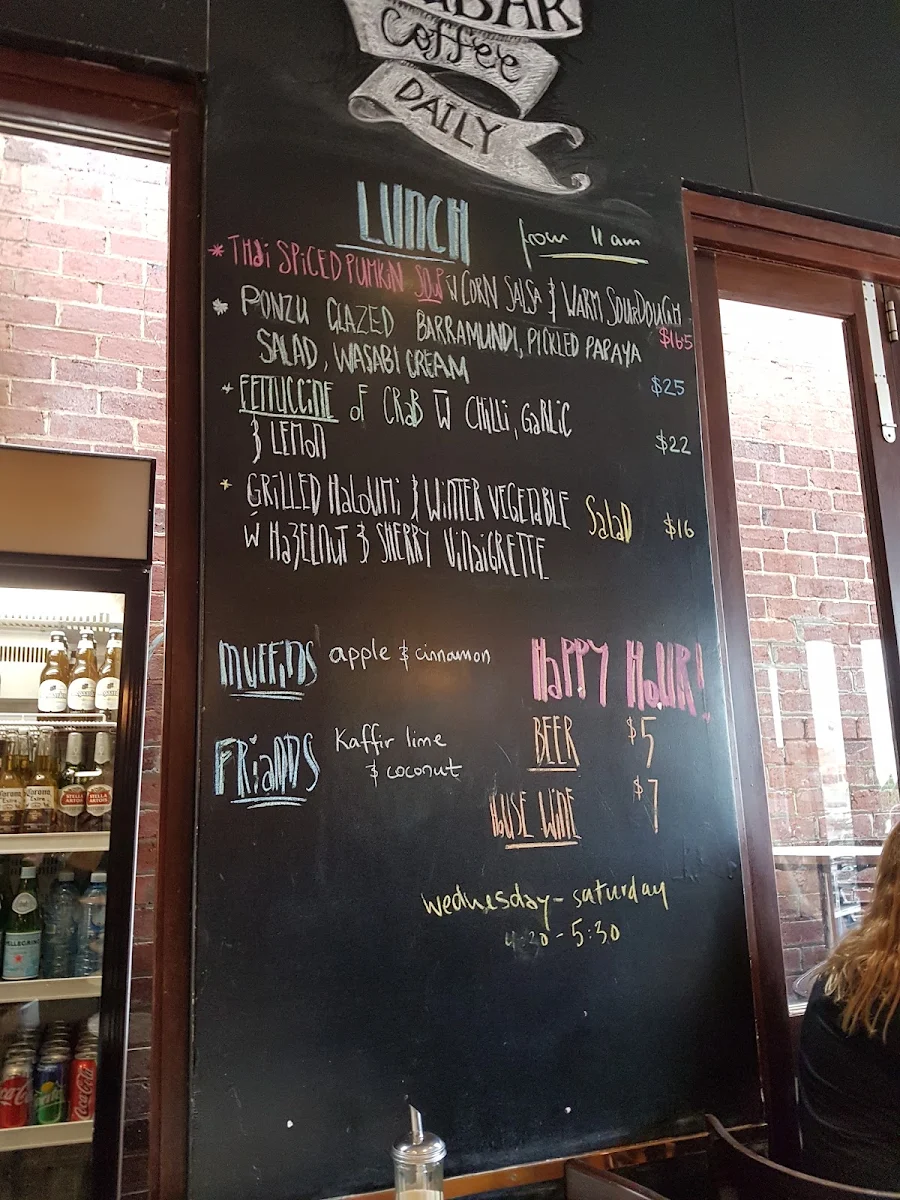 Coffee
DAILY
LUNCH from 11 am
* THai SPiCED PUMKiN SOUP w CORN SALSA & WARM SOURDOUGH
$16.5
* PONZU GLAZED BARRAMUNDI, PICKLED PAPAYA
SALAD, WASABI CREAM
$25
* FETTUCCINE of CRaB w CHiLLi, GaRLiC
& LEMON
$22
* GRILLED HALOUMI & WINTER VEGETABLE SaLaD $16
W HAZELNUT & SHERRY VINAIGRETTE
MUFFiNS apple & cinnamon
HAPPY HOUR!
FRiANDS Kaffir lime
& coconut
BEER $5
HOUSE WINE $7
wednesday - saturday
4:30 - 5:30
Corona
Extra
STELLA
ARTOIS
STELLA
ARTOIS
PELLEGRINO
Coca-Cola
Sprite
Coca-Cola